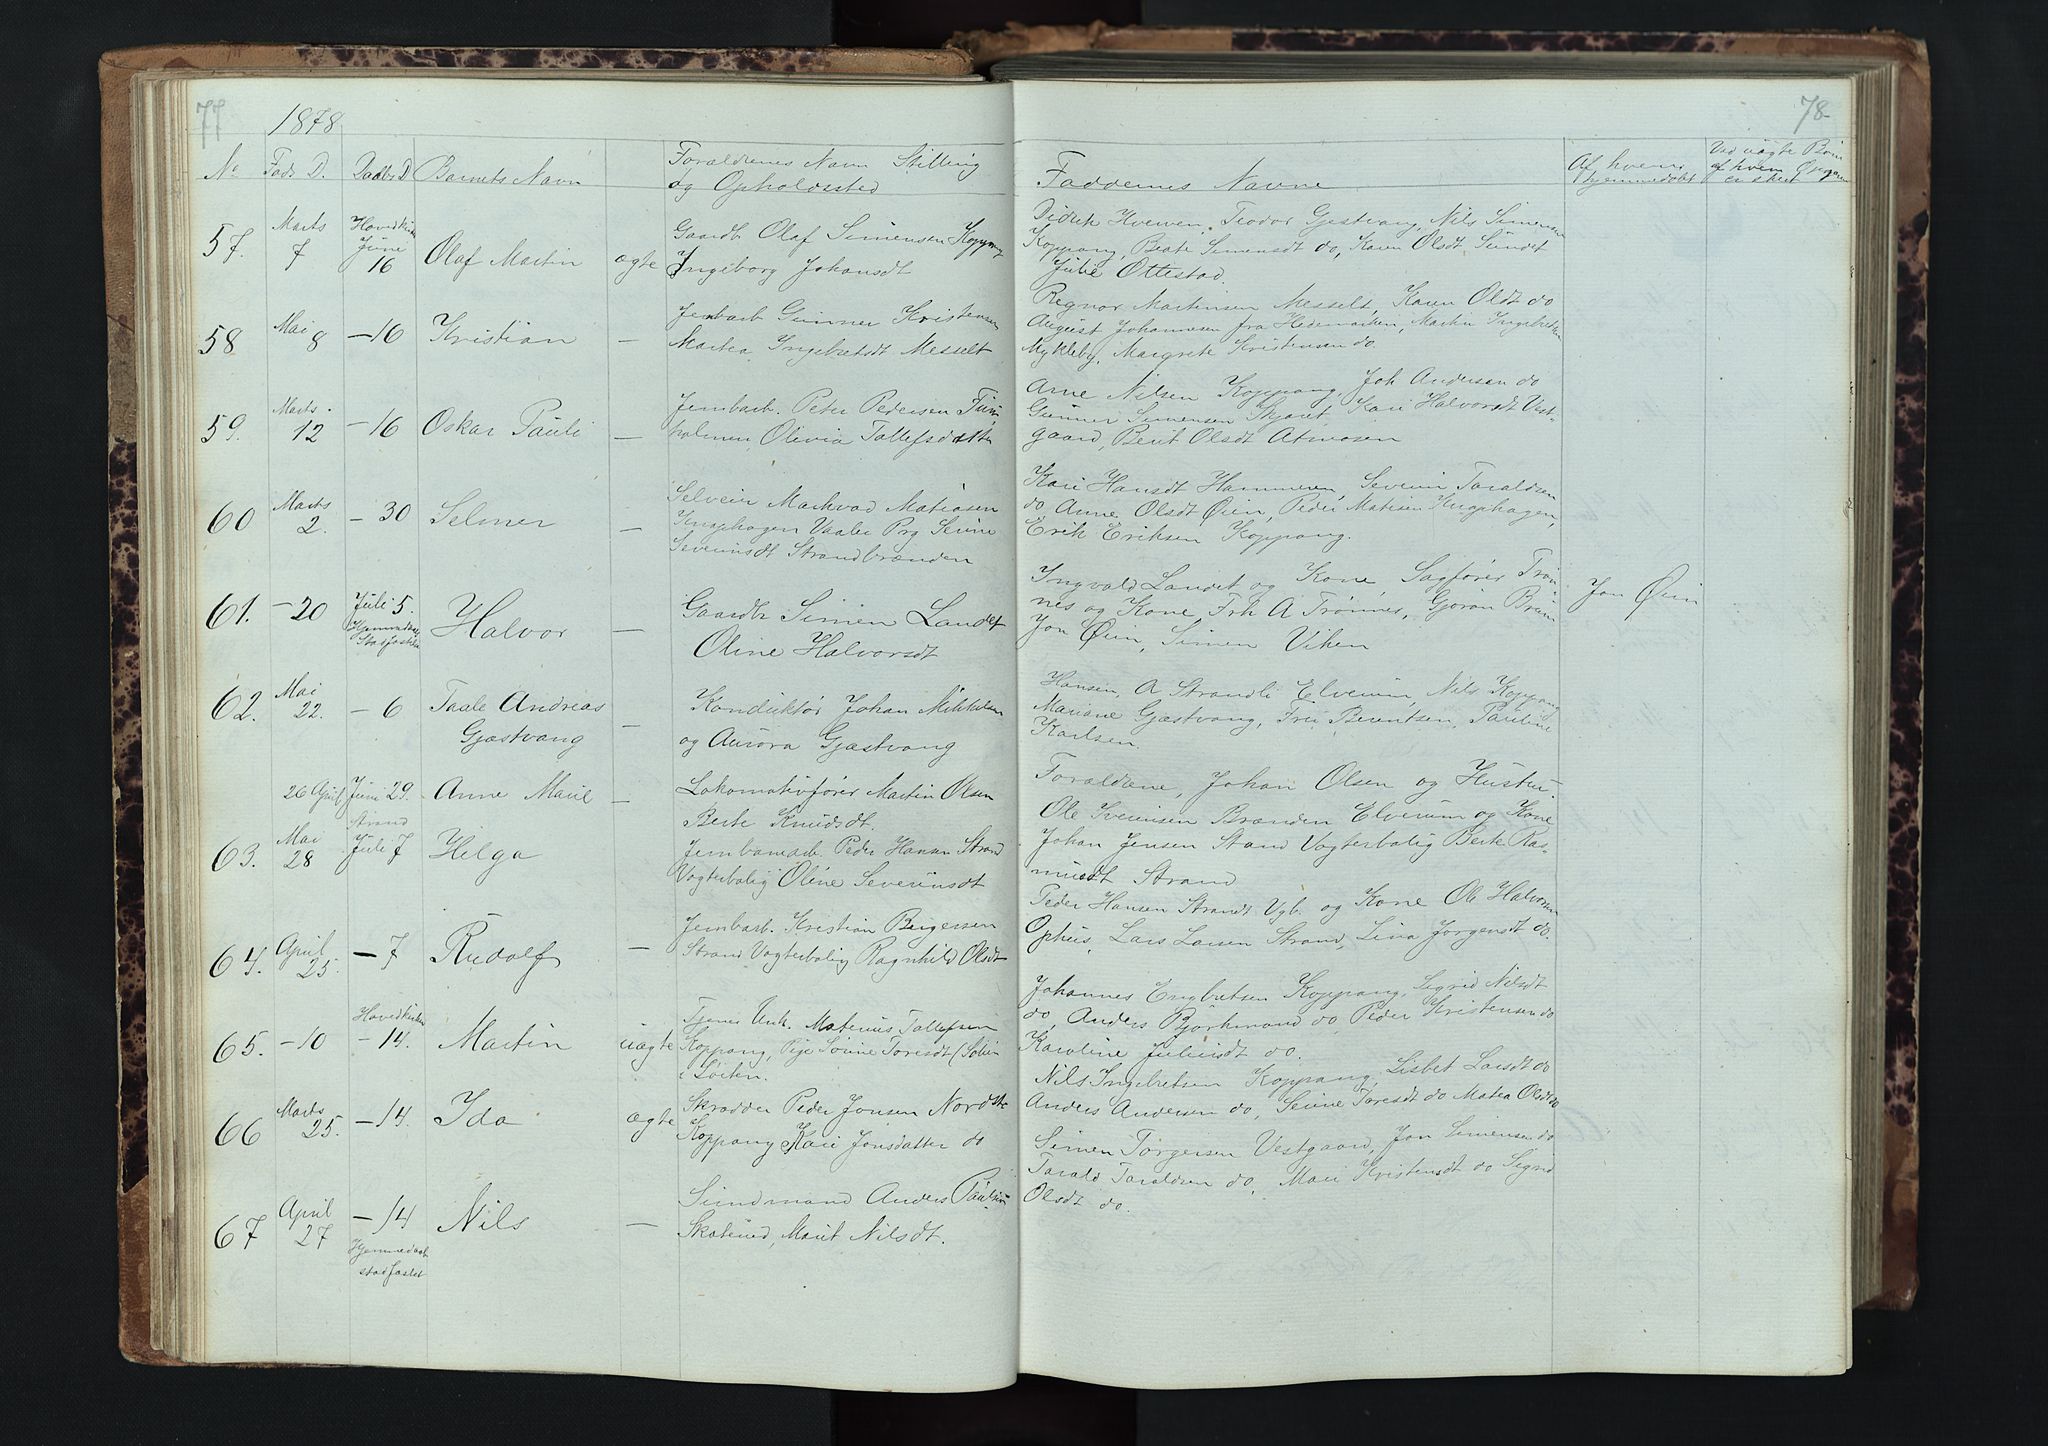 77
1878
No Føds D. Daabs D Barnets Navn
Forældrenes Navn Stilling
og Opholdssted
57. Marts 7 Hovedkirken June 16 Olaf Martin ægte
Gaardb Olaf Simensen Koppang
Ingeborg Johansdt
58 Mai 8 -16 Kristian —
Jernbarb Gunner Kristensen
Martea Ingebretsdt Messelt
59. Marts 12 -16 Oskar Pauli —
Jernbarb. Peter Pedersen
holmen, Olivia Tollefsdatter
60 Marts 2. -30 Selmer —
Markvad Matiasen
Knaphagen Vaaler Prg
Severinsdt Strandbrænden
61. -20 Juli 5. Hjemmedaab Stadfæstelse Halvor —
Gaardb Simen Landet
Oline Halvorsdt
62. Mai 22. -6 Taale Andreas —
Gjæstvang
Konduktør Johan Mikkelsen
og Aurora Gjæstvang
26 April Juni 29. Anne Marie —
Lokomotivfører Martin Olsen
Berte Knudsdt.
63. Mai 28 Strand Juli 7 Helga
Peder Hansen Strand
Vogterbolig Oline Severinsdt
64. April 25. -7 Rudolf —
Jernbarb. Kristian Birgersen
Strand Vogterbolig Ragnhild Olsdt
65. -10 Hovedkirken -14. Martin uægte
Tjener Unk. Matenius Tollefsen
Koppang, Pige Toresdt
i Løiten.
66 Marts 25. -14. Ida ægte
Skrædder Peder Jonsen
Koppang Kari Jonsdatter do
67 April 27 -14 Hjemmedaab stadfæstet Nils —
Anders Paulsen
Marit Nilsdt.
78
Faddernes Navne
Af hvem hjemmedøbt
Ved uægte Børn
af hvem Opgaven
er skeet
Didrik Hverven, Teodor Gjestvang, Nils Simensen
Koppang, Beate Simensdt do, Karen Olsdt Sundet
Julie Ottestad.
Regnor Martinsen Messelt, Karen Olsdt do
August Johannesen fra Hedemarken, Martin Ingebretsen
Mykleby, Margrete Kristensen do.
Arne Nilsen Koppang, Joh Andersen do
Gunner Simensen Skjæret, Kari Halvorsdt Vest-
gaard, Berit Olsdt Atmosen
Kari Hansdt Hammeren, Severin Taraldsen
do Anne Olsdt Øien, Peder Matisen Knaphagen,
Erik Eriksen Koppang.
Ingvald Landet og Kone, Sagfører Trøn-
nes og Kone, Frk A Trønnes, Gjøran
Jon Øien, Simen Viken
Jon Øien
Hansen, A Strandli Elverum, Nils Koppang
Mariane Gjæstvang, Fru Berentsen, Pauline
Karlsen.
Forældrene, Johan Olsen og Hustru.
Ole Iversen Brænden Elverum og Kone
Johan Jensen Strand Vogterbolig Berte Ras-
musdt Strand
Peder Hansen Strandt Vgb. og Kone Ole Halvorsen
Ophus, Lars Larsen Strand, Lina Jørgensdt do.
Johannes Engbretsen Koppang, Sigrid Nilsdt
do, Anders Bjørkmand do, Peder Kristensen do
Karoline Juliusdt do.
Nils Ingebretsen Koppang, Lisbet Larsdt do
Anders Andersen do, Toresdt do Matea Olsdt do
Simen Torgersen Vestgaard, Jon Simensen do
Tarald Taraldsen do, Mari Kristensdt do Sigrid
Olsdt do.